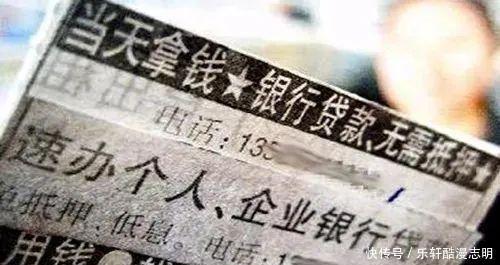 当天拿钱★银行贷款、无需抵押★
电话:133
速办个人、企业银行贷
抵押、低息。电话:1
用钱
快传号/乐轩酷漫志明